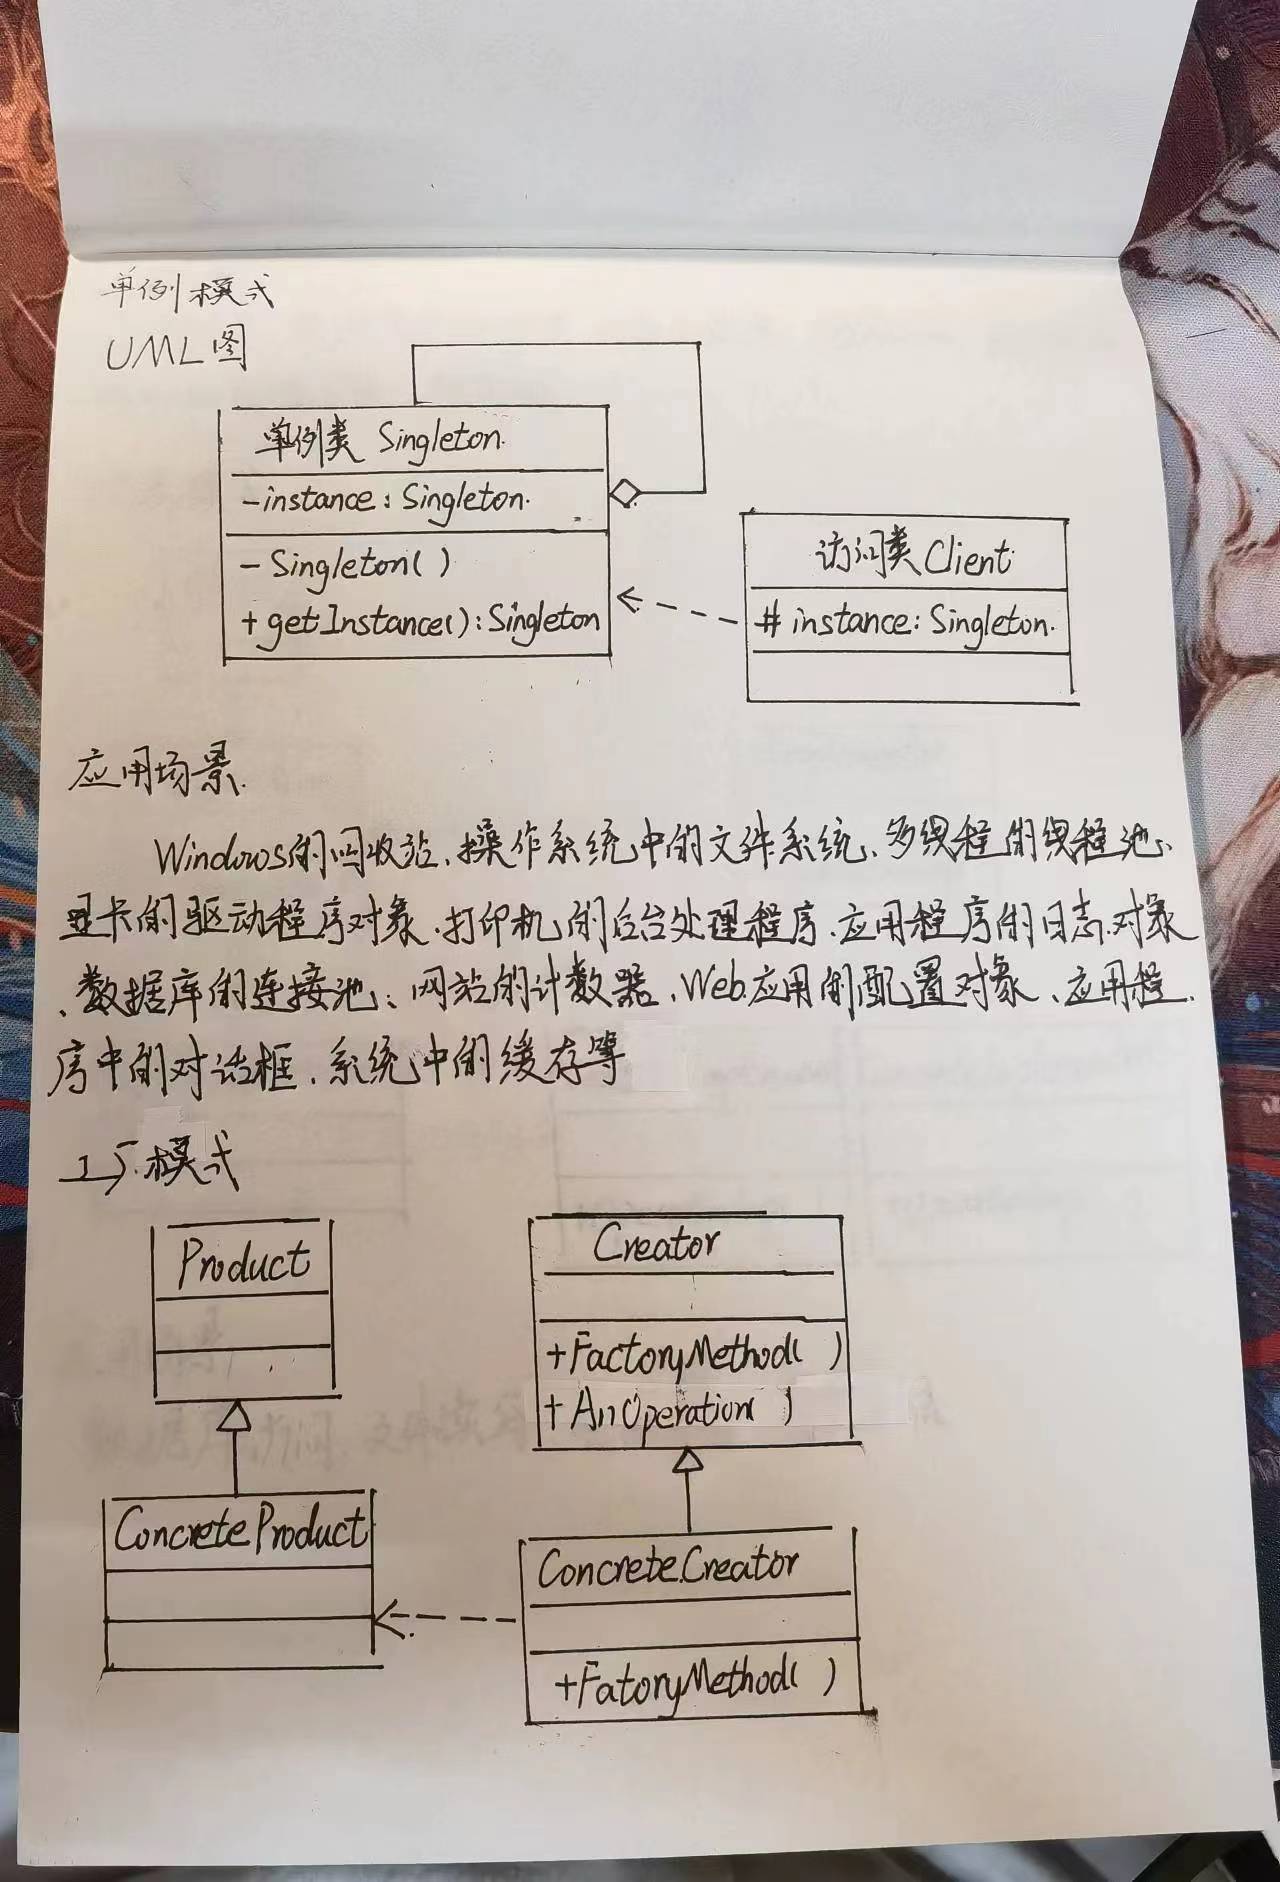 单例模式
UML图
单例类 Singleton.
-instance: Singleton.
- Singleton( )
+ getInstance(): Singleton
访问类 Client
# instance: Singleton.
应用场景.
Windows的回收站、操作系统中的文件系统、多线程的线程池、
显卡的驱动程序对象、打印机的后台处理程序、应用程序的日志对象
、数据库的连接池、网站的计数器、Web应用的配置对象、应用程
序中的对话框、系统中的缓存等
工厂模式
Product
Creator
+FactoryMethod( )
+AnOperation( )
ConcreteProduct
ConcreteCreator
+FatoryMethod( )